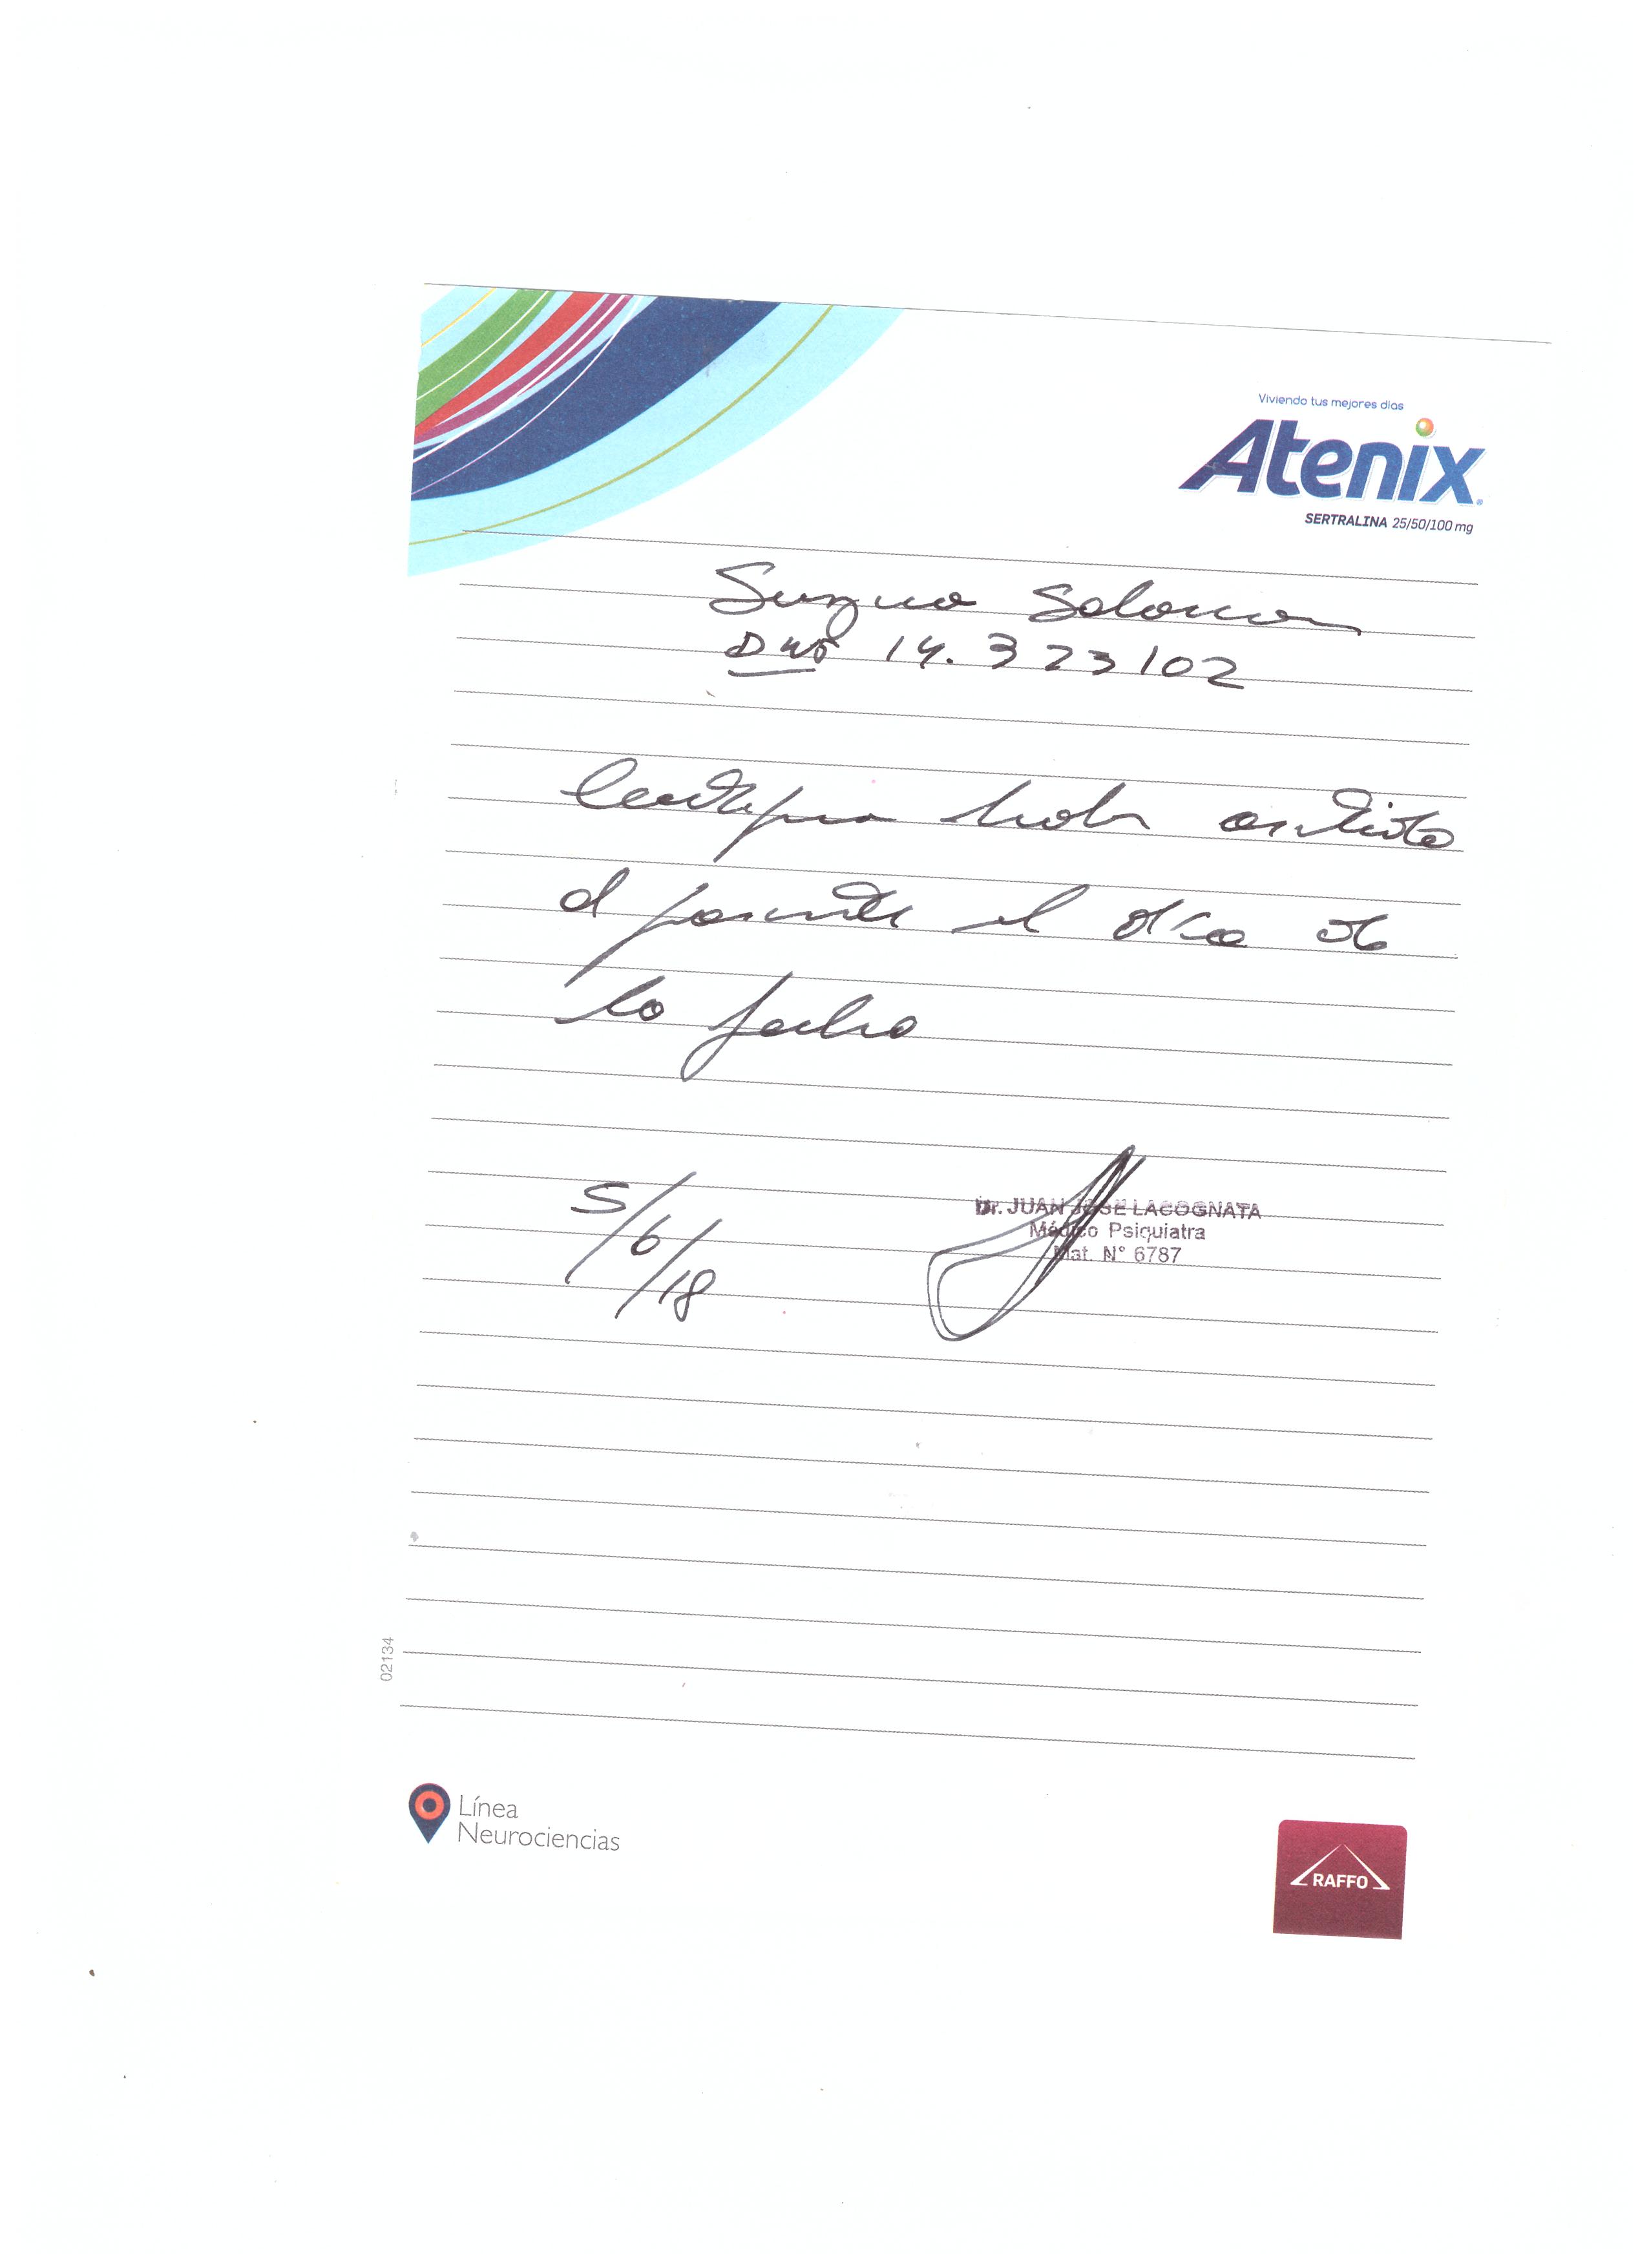 Viviendo tus mejores días
Atenix
SERTRALINA 25/50/100 mg
Susana Salomon
DNI 14.323102
Certifico haber asistido
al paciente el día de
la fecha
5/6/18
Dr. JUAN JOSE LACOGNATA
Médico Psiquiatra
Mat. N° 6787
02134
Línea
Neurociencias
RAFFO